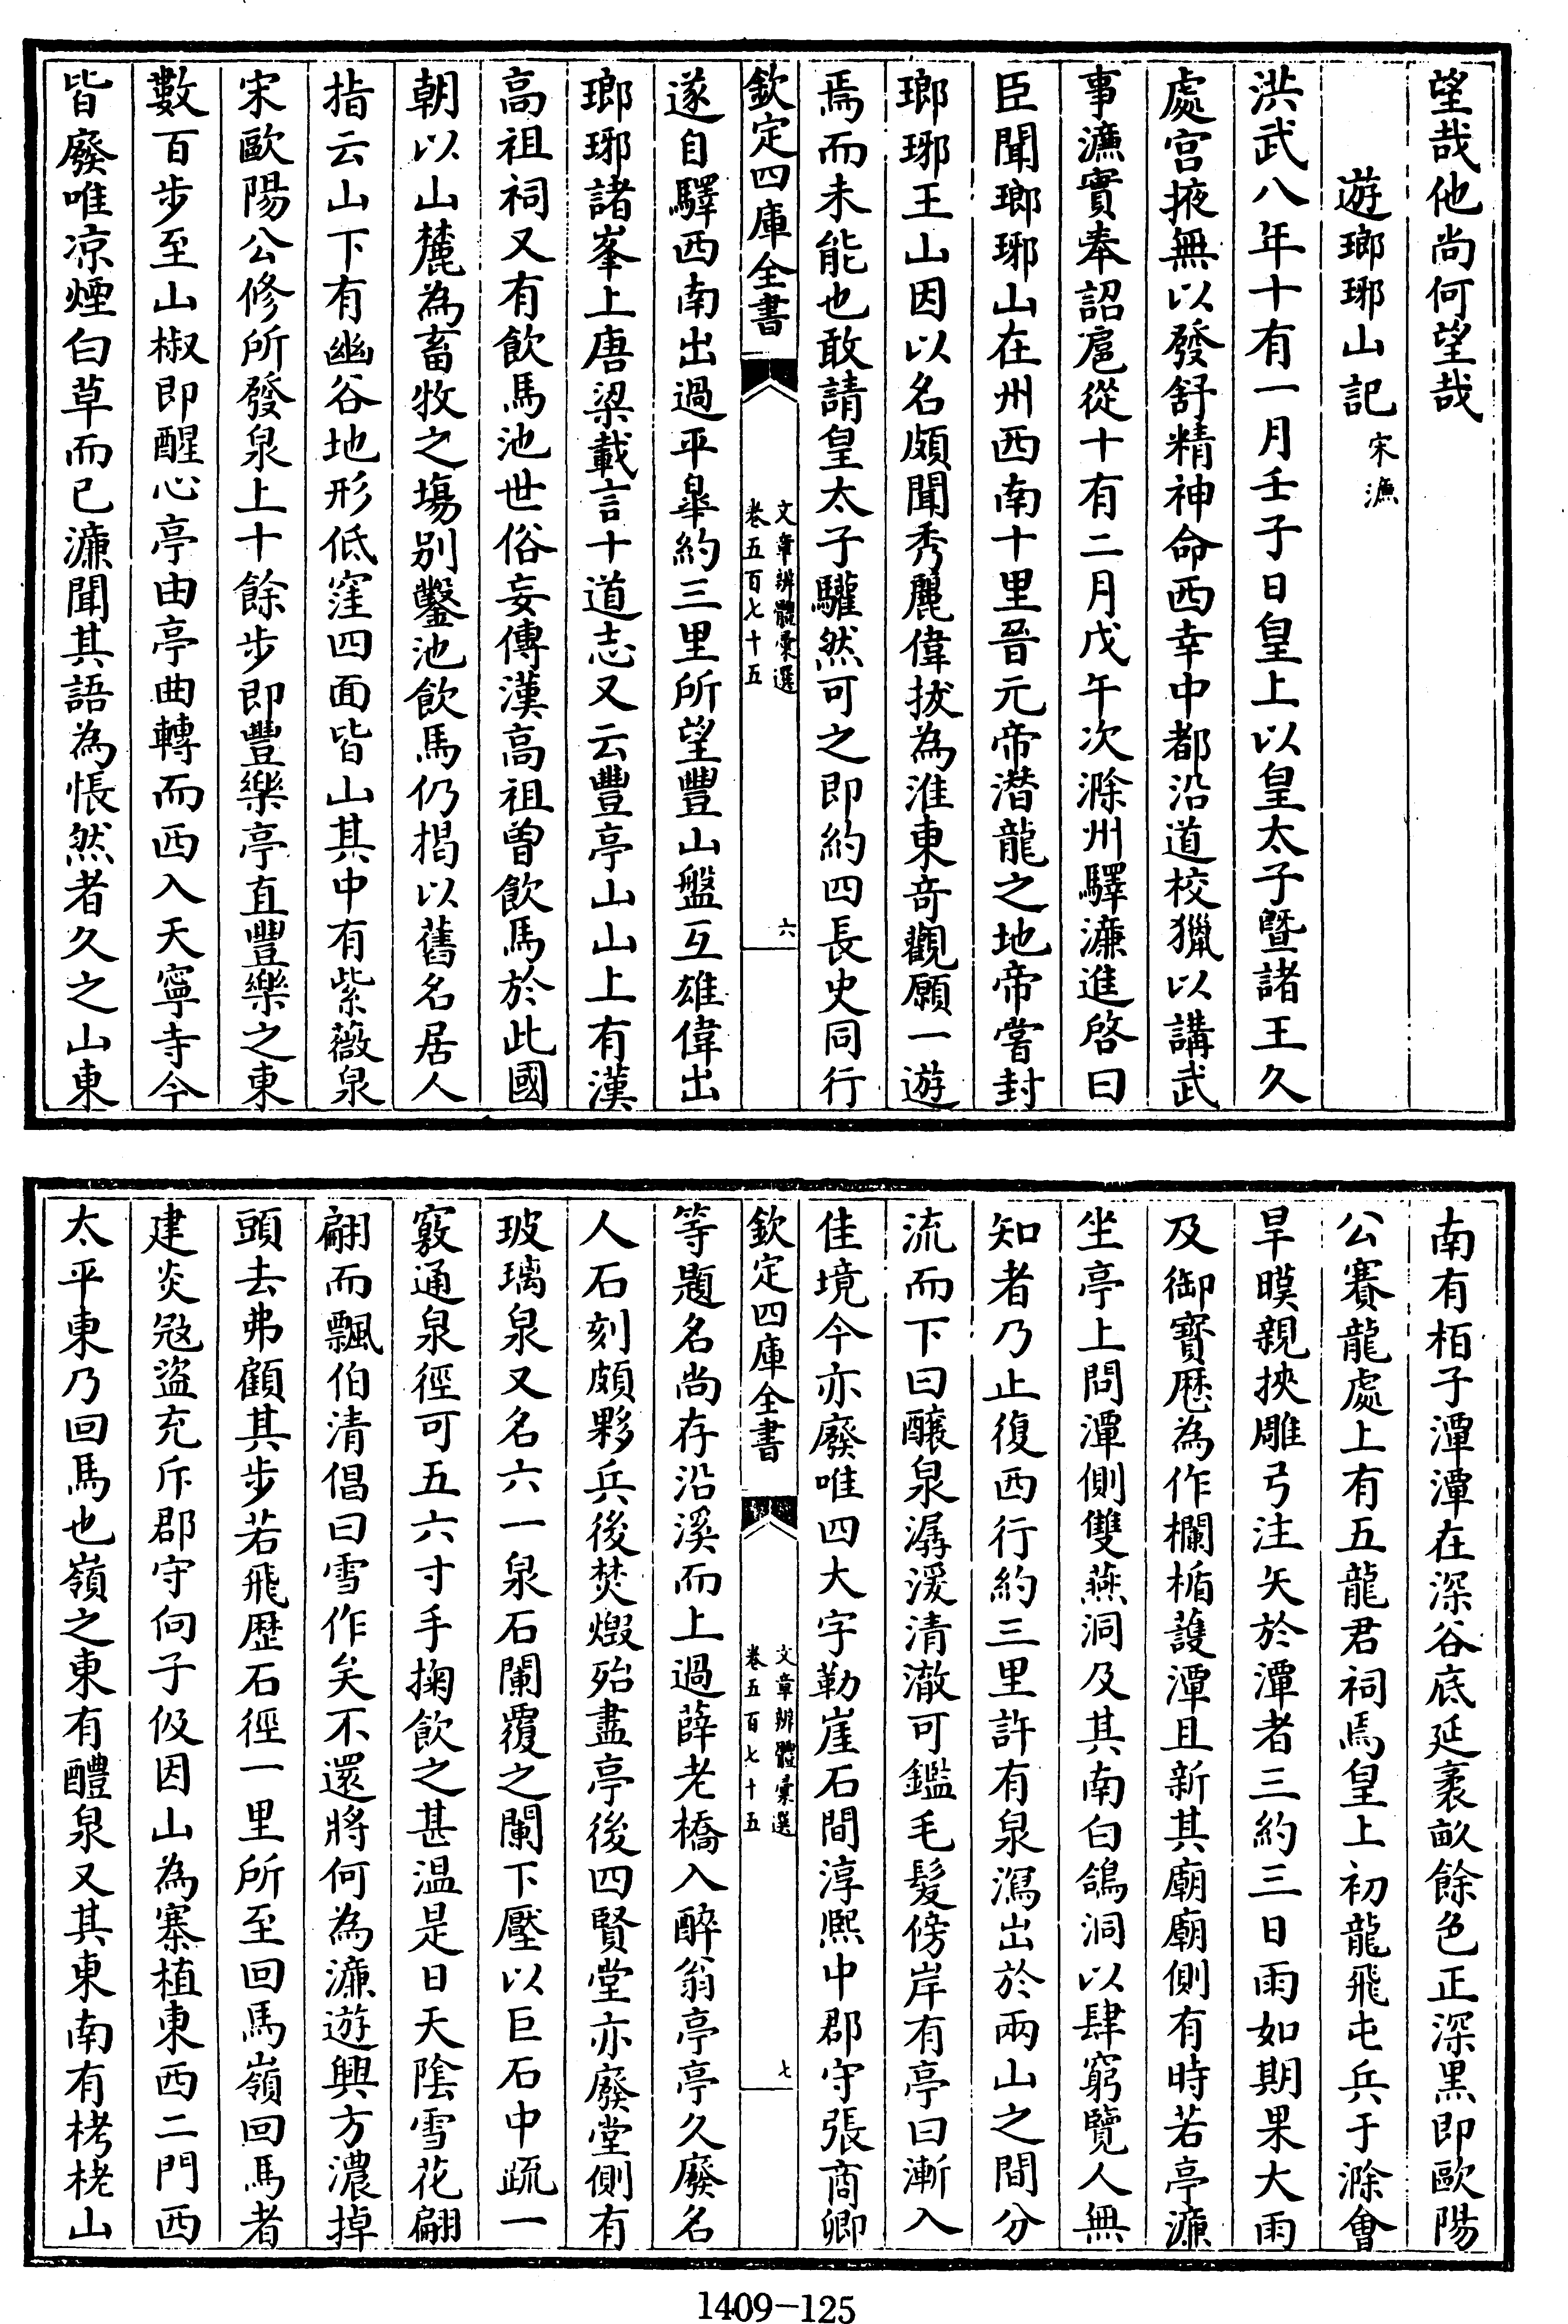 望哉他尚何望哉
遊瑯琊山記 宋濂
洪武八年十有一月壬子日皇上以皇太子暨諸王久
處宮掖無以發舒精神命西幸中都沿道校獵以講武
事濂實奉詔扈從十有二月戊午次滁州驛濂進啓曰
臣聞瑯琊山在州西南十里晉元帝潛龍之地帝嘗封
瑯琊王山因以名頗聞秀麗偉拔為淮東奇觀願一遊
焉而未能也敢請皇太子驩然可之即約四長史同行
欽定四庫全書
文章辨體彙選
卷五百七十五
六
遂自驛西南出過平臯約三里所望豐山盤亙雄偉出
瑯琊諸峯上唐梁載言十道志又云豐亭山山上有漢
高祖祠又有飲馬池世俗妄傳漢高祖曾飲馬於此國
朝以山麓為畜牧之塲別鑿池飲馬仍揭以舊名居人
指云山下有幽谷地形低窪四面皆山其中有紫薇泉
宋歐陽公修所發泉上十餘步即豐樂亭直豐樂之東
數百步至山椒即醒心亭由亭曲轉而西入天寧寺今
皆廢唯凉煙白草而已濂聞其語為悵然者久之山東
南有栢子潭潭在深谷底延袤畝餘色正深黑即歐陽
公賽龍處上有五龍君祠焉皇上初龍飛屯兵于滁會
旱暵親挾雕弓注矢於潭者三約三日雨如期果大雨
及御寳歷為作欄楯護潭且新其廟廟側有時若亭濂
坐亭上問潭側雙燕洞及其南白鴿洞以肆窮覽人無
知者乃止復西行約三里許有泉瀉出於兩山之間分
流而下曰醸泉潺湲清澈可鑑毛髮傍岸有亭曰漸入
佳境今亦廢唯四大字勒崖石間淳熙中郡守張商卿
欽定四庫全書
文章辨體彙選
卷五百七十五
七
等題名尚存沿溪而上過薛老橋入醉翁亭亭久廢名
人石刻頗夥兵後焚燬殆盡亭後四賢堂亦廢堂側有
玻璃泉又名六一泉石闌覆之闌下壓以巨石中疏一
竅通泉徑可五六寸手掬飲之甚温是日天陰雪花翩
翩而飄伯清倡曰雪作矣不還將何為濂遊興方濃掉
頭去弗顧其步若飛歷石徑一里所至回馬嶺回馬者
建炎冦盜充斥郡守向子伋因山為寨植東西二門西
太平東乃回馬也嶺之東有醴泉又其東南有栲栳山
1409-125